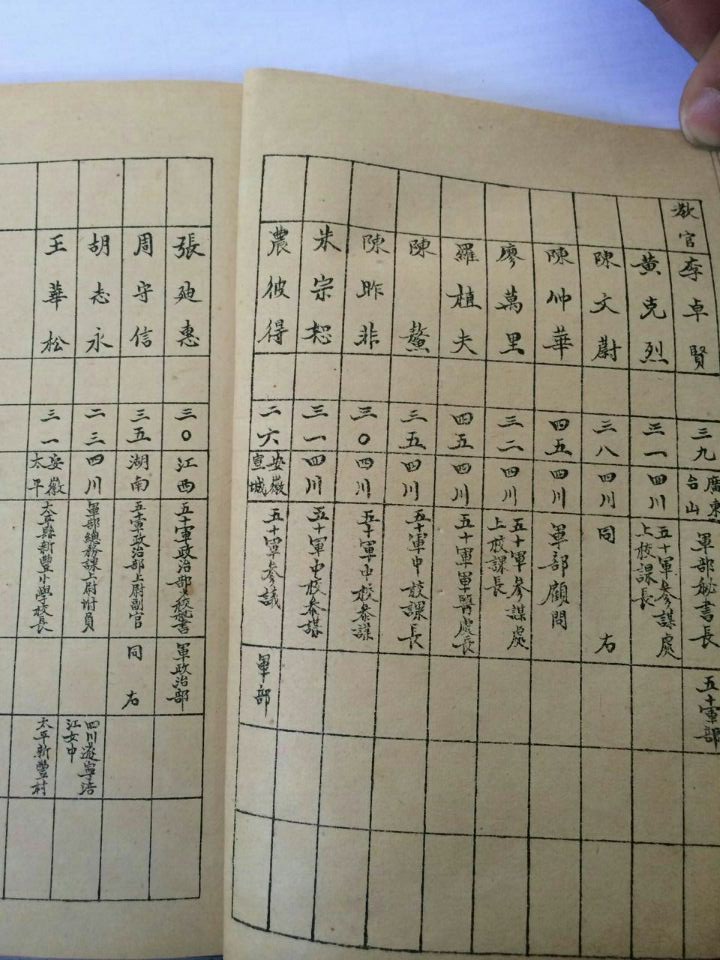 教官 李卓賢 三九 廣東台山 軍部秘書長 五十軍部
黃克烈 三一 四川 五十軍參謀處上校課長
陳文蔚 三八 四川 同右
陳帥華 四五 四川 軍部顧問
廖萬里 三二 四川 五十軍參謀處上校課長
羅植夫 四五 四川 五十軍軍醫處長
陳鰲 三五 四川 五十軍中校課長
陳昨非 三〇 四川 五十軍中校參謀
朱宗恕 三一 四川 五十軍中校參謀
農彼得 二六 安徽宣城 五十軍參議 軍部
張廸惠 三〇 江西 五十軍政治部秘書 軍政治部
周守信 三五 湖南 五十軍政治部上尉副官 同右
胡志永 二三 四川 軍部總務課上尉附員 四川遂寧涪江女中
王華松 三一 安徽太平 太平縣新豐小學校長 太平新豐村